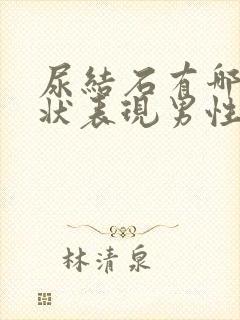 尿結石有哪
狀表現男性
林清泉